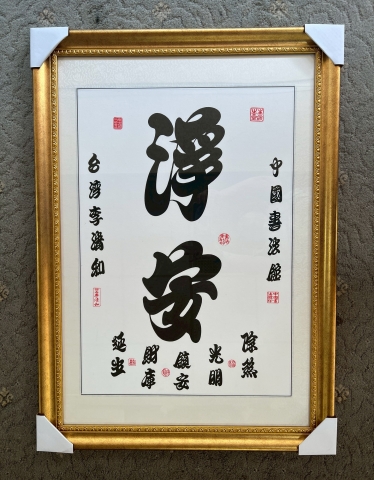 中國書法館
淨安
台湾李和
除煞
光明
鎮安
財庫
延生